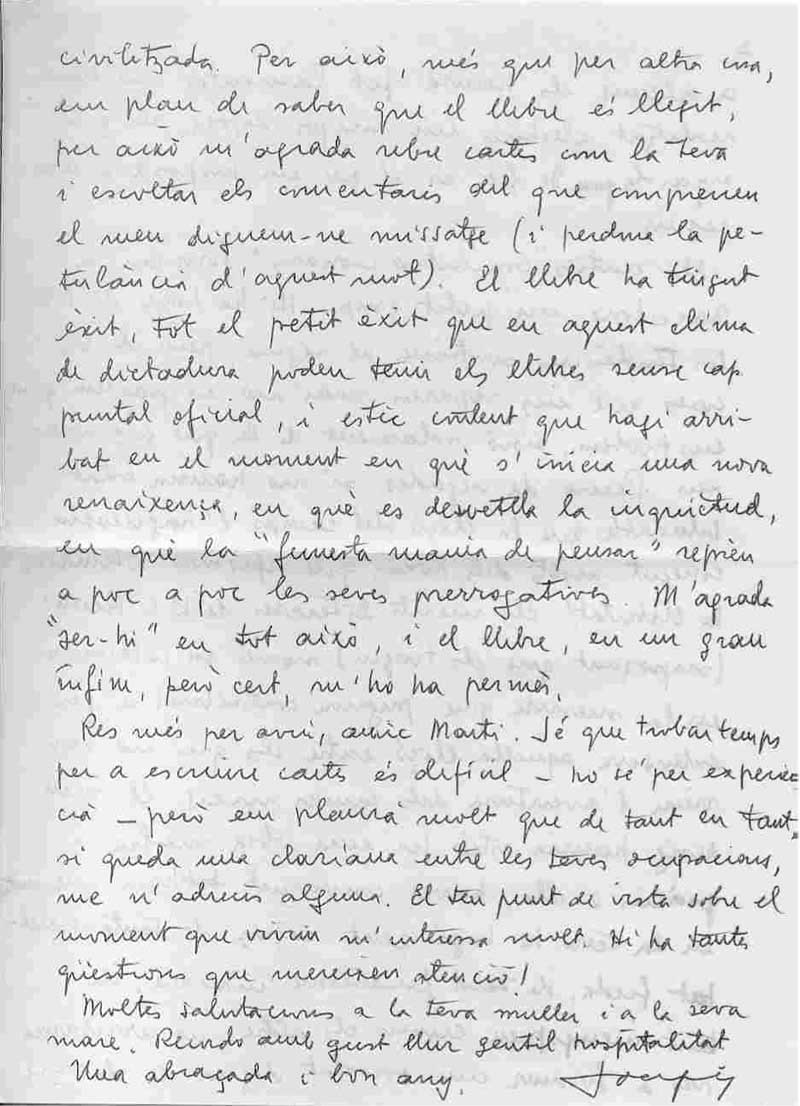 civilitzada. Per això, més que per altra cosa,
em plau de saber que el llibre és llegit,
per això m'agrada rebre cartes com la teva
i escoltar els comentaris del que comprenen
el meu diguem-ne missatge (i perdona la pe-
tulància d'aquest mot). El llibre ha tingut
èxit, tot el petit èxit que en aquest clima
de dictadura poden tenir els llibres sense cap
puntal oficial, i estic content que hagi arri-
bat en el moment en què s'inicia una nova
renaixença, en què es desvetlla la inquietud,
en què la "funesta mania de pensar" reprèn
a poc a poc les seves prerrogatives. M'agrada
"ser-hi" en tot això, i el llibre, en un grau
ínfim, però cert, m'ho ha permès.
Res més per avui, amic Martí. Sé que trobar temps
per a escriure cartes és difícil - ho sé per experièn-
cia - però em plaurà molt que de tant en tant,
si queda una clariana entre les teves ocupacions,
me n'adrecis alguna. El teu punt de vista sobre el
moment que vivim m'interessa molt. Hi ha tantes
qüestions que mereixen atenció!
Moltes salutacions a la teva muller i a la seva
mare. Recordo amb gust llur gentil hospitalitat
Una abraçada i bon any.